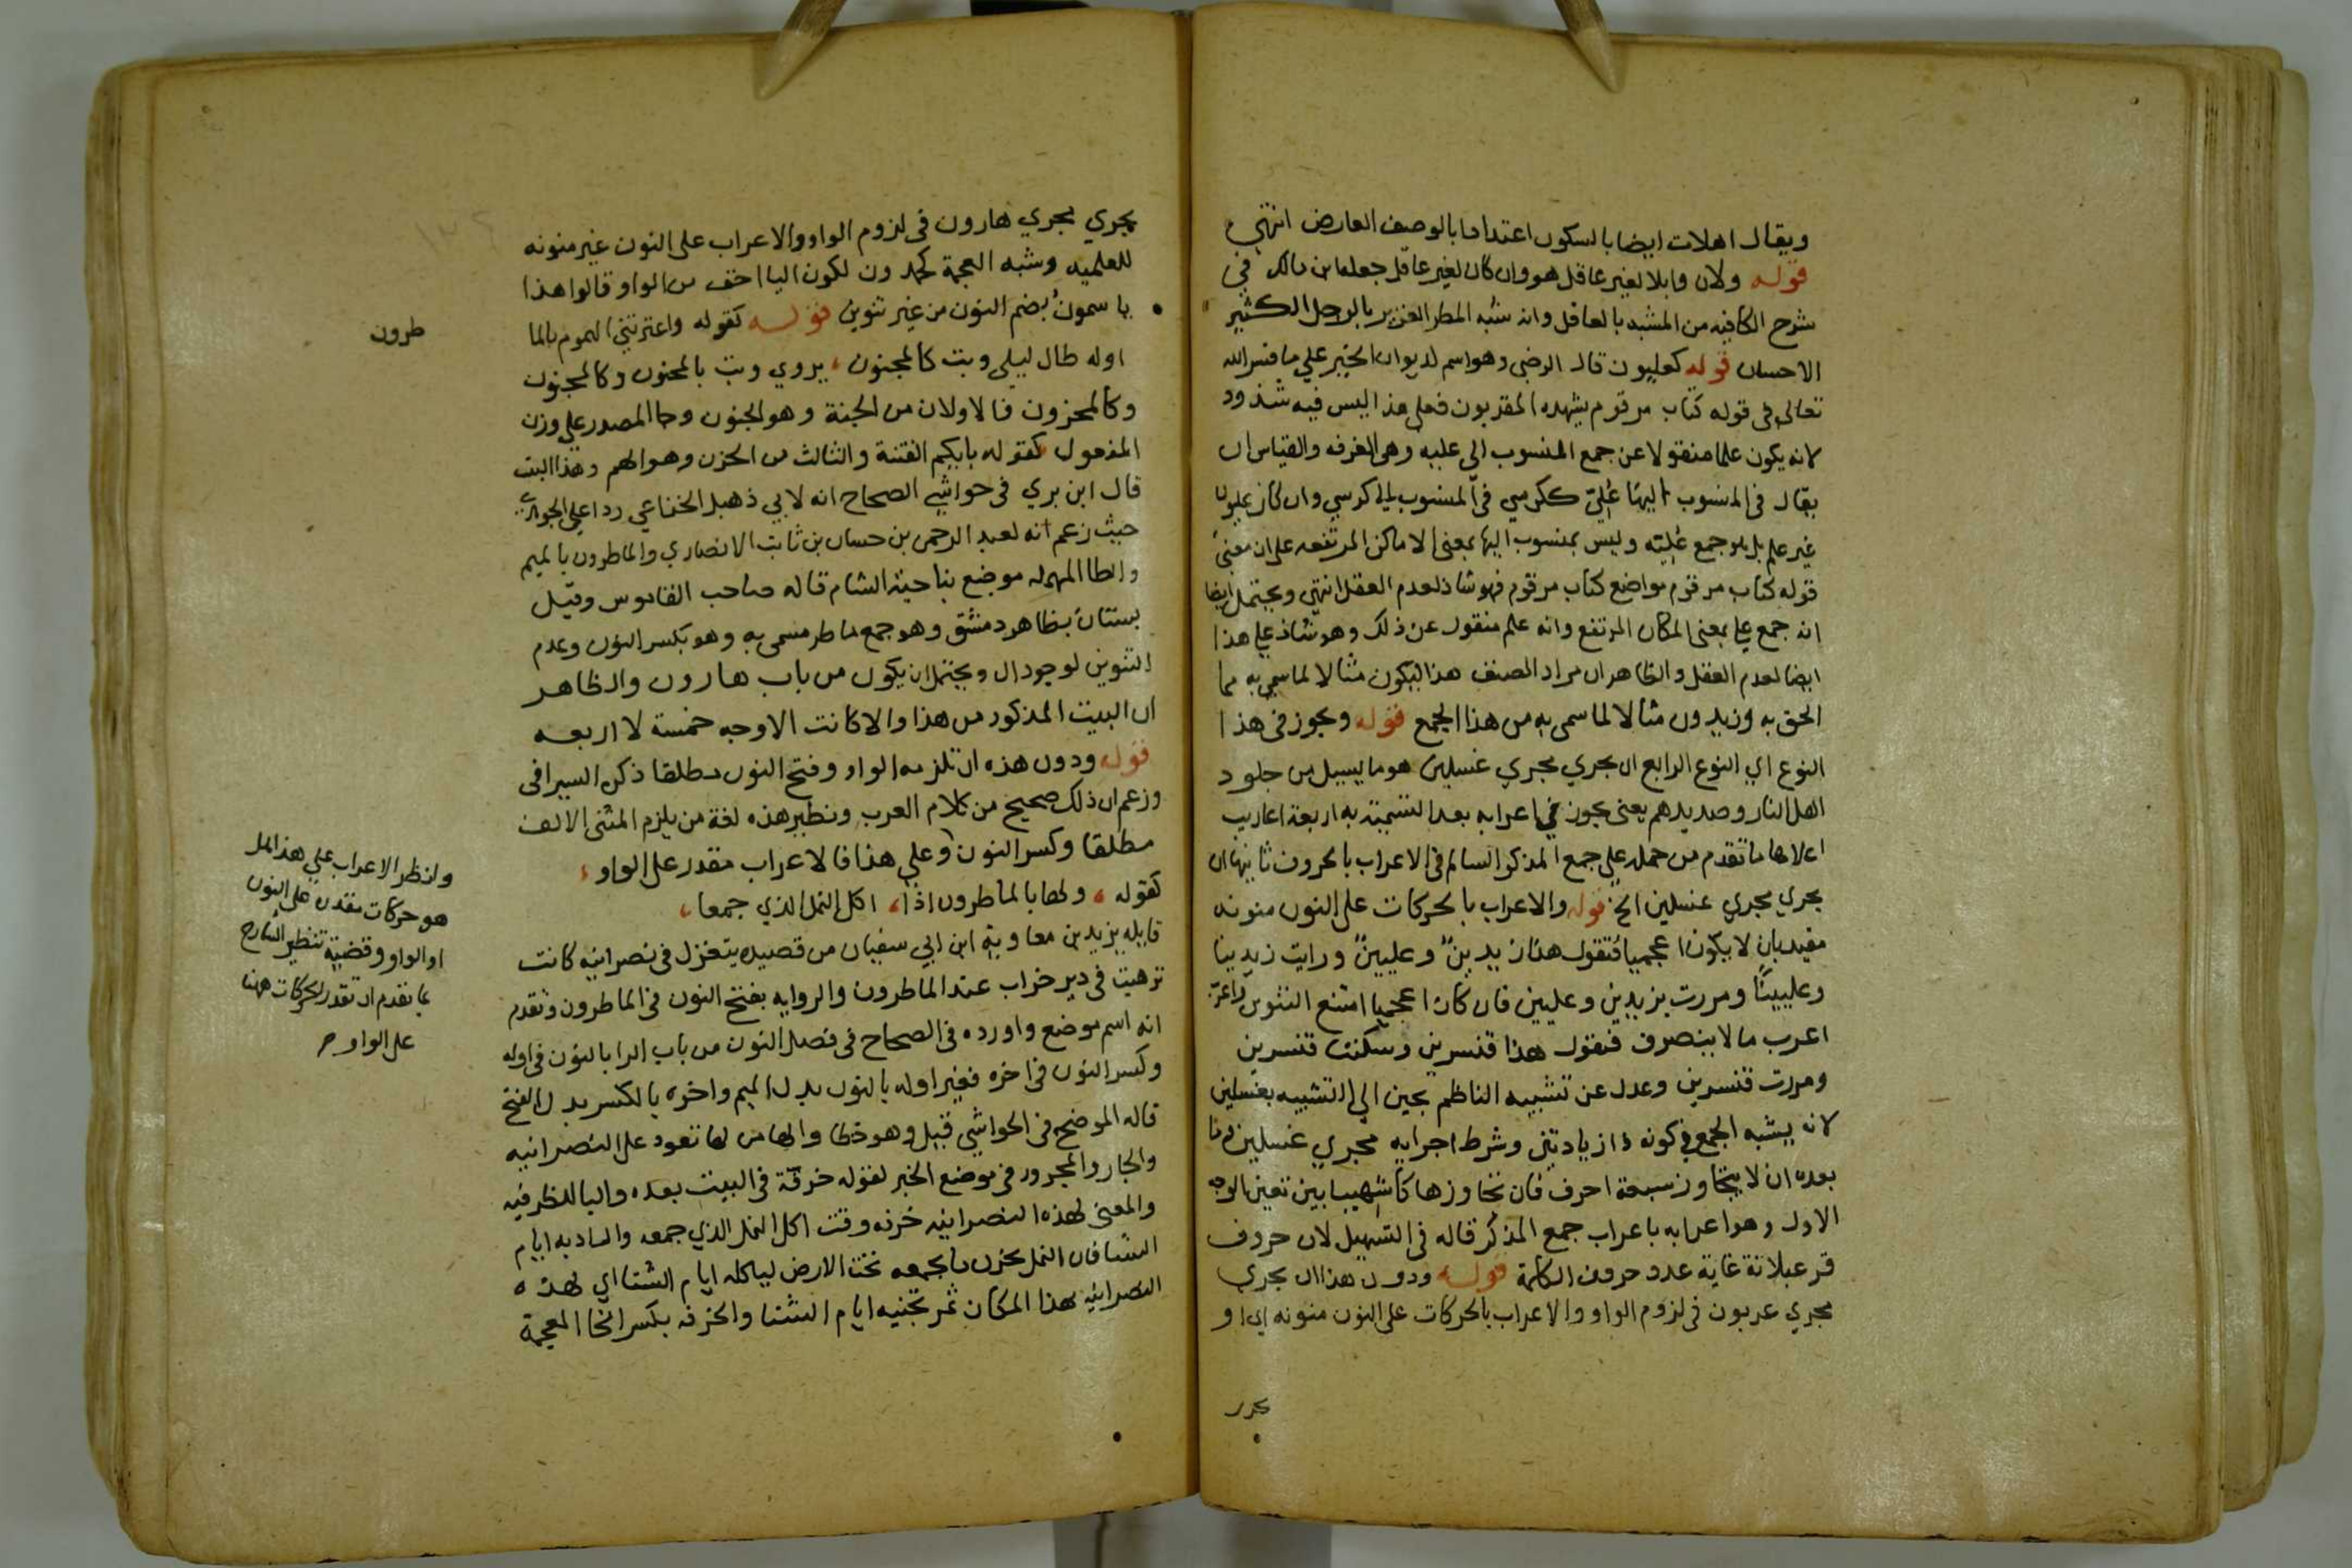 ويقال اهلات ايضا بالسكون اعتدادا بالوصف العارض انتهى
قوله ولان وابلا لغير عاقل هو وان كان لغير عاقل جعله ابن مالك في
شرح الكافيه من المشبه بالعاقل وانه شبه المطر الغزير بالرجل الكثير
الاحسان قوله كعليون قال الرضى وهو اسم لديوان الخير علي ما فسر الله
تعالى في قوله كتاب مرقوم يشهده المقربون فعلى هذا ليس فيه شذوذ
لانه يكون علما منقولا عن جمع المنسوب الى عليه وهى الغرفه والقياس ان
يقال في المنسوب اليها عُلِيّ ككرسي في المنسوب الى كرسي وان كان عليون
غير علم بل هو جمع عُليّه وليس بمنسوب اليها بمعنى الاماكن المرتفعه على ان معنى
قوله كتاب مرقوم مواضع كتاب مرقوم فهو شاذ لعدم العقل انتهى ويحتمل ايضا
انه جمع علي بمعنى المكان المرتفع وانه علم منقول عن ذلك وهو شاذ علي هذا
ايضا لعدم العقل والظاهر ان مراد المصنف هذا ليكون مثالا لما سمي به مما
الحق به وزيدون مثالا لما سمى به من هذا الجمع قوله ويجوز في هذا
النوع اي النوع الرابع ان يجري مجري غسلين هو ما يسيل من جلود
اهل النار وصديدهم يعنى يجوز في اعرابه بعد التسمية به اربعة اعاريب
اعلاها ما تقدم من حمله علي جمع المذكر السالم في الاعراب بالحروف ثانيها ان
يجري مجري غسلين الخ قوله والاعراب بالحركات على النون منونه
مقيد بان لا يكون اعجميا فتقول هذا زيدينٌ وعليينٌ ورايت زيدينا
وعليينًا ومررت بزيدين وعليين فان كان اعجميا امتنع التنوين واعرب
اعرب مالا ينصرف فتقول هذا قنسرين وسكنت قنسرين
ومررت قنسرين وعدل عن تشبيه الناظم بحين الي التشبيه بغسلين
لانه يشبه الجمع في كونه ذا زيادتين وشرط اجرايه مجري غسلين وما
بعده ان لا يتجاوز سبعة احرف فان تجاوزها كاشهيبابين تعين الوجه
الاول وهو اعرابه باعراب جمع المذكر قاله في التسهيل لان حروف
قرعبلانة غاية عدد حروف الكلمة قوله ودون هذا ان يجري
مجري عربون في لزوم الواو والاعراب بالحركات على النون منونه اي او
يجري
يجري مجري هارون في لزوم الواو والاعراب على النون غير منونه
للعلميه وشبه العجمة كحمدون لكون اليا اخف من الواو قالوا هذا
ياسمونُ بضم النون من غير تنوين قوله كقوله واعترتني الهموم بالما
طرون
اوله طال ليلي وبت كالمجنون، يروي وبت بالمحزون وكالمجنون
وكالمحزون فالاولان من الجنة وهو الجنون وجا المصدر علي وزن
المفعول كقوله بايكم الفتنة والثالث من الحزن وهو الهم وهذا البيت
قال ابن بري في حواشي الصحاح انه لابي ذهبل الخناعي ردا علي الجوهري
حيث زعم انه لعبد الرحمن بن حسان بن ثابت الانصاري والماطرون بالميم
والطا المهمله موضع بناحية الشام قاله صاحب القاموس وقيل
بستان بظاهر دمشق وهو جمع ماطر مسمى به وهو بكسر النون وعدم
التنوين لوجود ال ويحتمل ان يكون من باب هارون والظاهر
ان البيت المذكور من هذا والا كانت الاوجه خمسة لا اربعه
قوله ودون هذه ان تلزمه الواو وفتح النون مطلقا ذكره السيرافى
وزعم ان ذلك صحيح من كلام العرب ونظير هذه لغة من يلزم المثنى الالف
مطلقا وكسر النون وعلي هذا فالاعراب مقدر على الواو،
كقوله، ولها بالماطرون اذا، اكل النمل الذي جمعا،
قايله يزيد بن معاوية ابن ابي سفيان من قصيده يتغزل في نصرانيه كانت
ترهبت في دير خراب عند الماطرون والروايه بفتح النون في الماطرون وتقدم
انه اسم موضع واورده في الصحاح في فصل النون من باب الرا بالنون في اوله
وكسر النون في اخره فغير اوله بالنون بدل الميم واخره بالكسر بدل الفتح
قاله الموضح في الحواشي قيل وهو خطا والها من لها تعود على النصرانيه
والجار والمجرور في موضع الخبر لقوله خرفة في البيت بعده والبا للظرفيه
والمعنى لهذه النصرانيه خرفه وقت اكل النمل الذي جمعه والمراد به ايام
الشتا فان النمل يخزن ما يجمعه تحت الارض لياكله ايام الشتا اي لهذه
النصرانيه بهذا المكان ثمر تجنيه ايام الشتا والخرفه بكسر الخا المعجمة
وانظر الاعراب علي هذا هل
هو حركات مقدره على النون
او الواو وقضية تنظير الشارح
بما تقدم ان تقدر الحركات هنا
على الواو